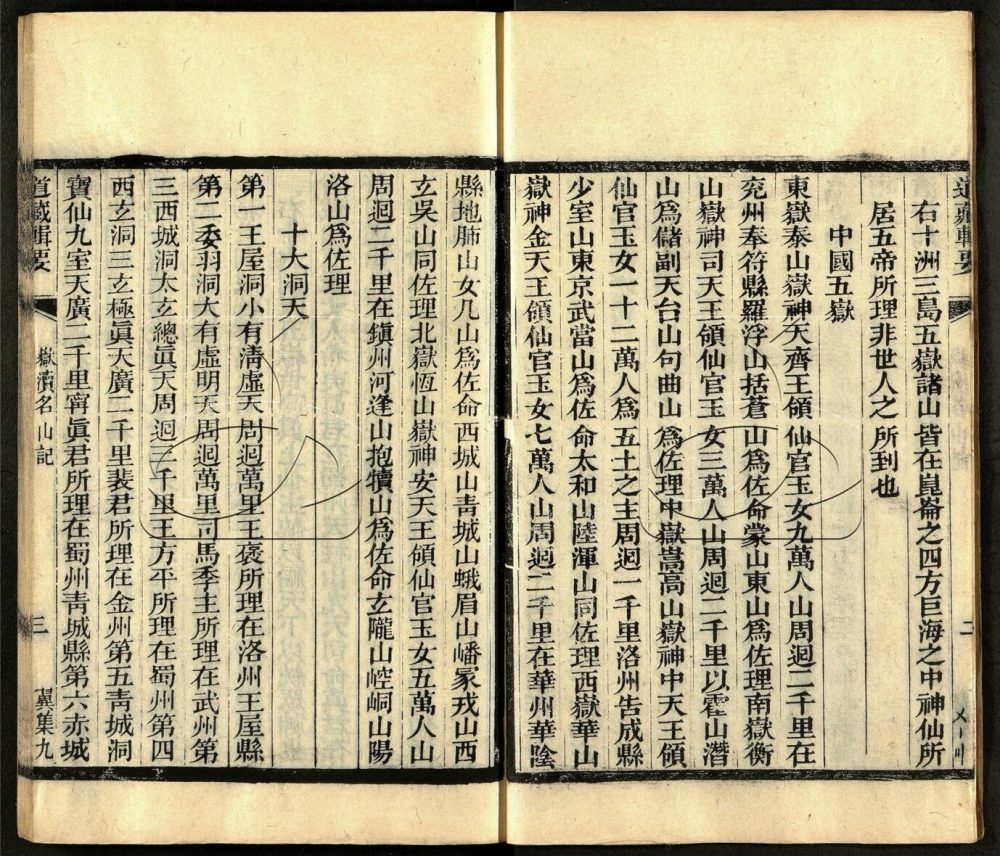 道藏輯要
二
右十洲三島五嶽諸山皆在崑崙之四方巨海之中神仙所
居五帝所理非世人之所到也
中國五嶽
東嶽泰山嶽神天齊王領仙官玉女九萬人山周迴二千里在
兗州奉符縣羅浮山括蒼山為佐命蒙山東山為佐理南嶽衡
山嶽神司天王領仙官玉女三萬人山周迴二千里以霍山潛
山為儲副天台山句曲山為佐理中嶽嵩高山嶽神中天王領
仙官玉女一十二萬人為五土之主周迴一千里洛州告成縣
少室山東京武當山為佐命太和山陸渾山同佐理西嶽華山
嶽神金天王領仙官玉女七萬人山周迴二千里在華州華陰
縣地肺山女几山為佐命西城山青城山峨眉山嶓冢戎山西
玄吳山同佐理北嶽恆山嶽神安天王領仙官玉女五萬人山
周迴二千里在鎮州河逢山抱犢山為佐命玄隴山崆峒山陽
洛山為佐理
十大洞天
第一王屋洞小有清虛天周迴萬里王褒所理在洛州王屋縣
第二委羽洞大有虛明天周迴萬里司馬季主所理在武州第
三西城洞太玄總眞天周迴三千里王方平所理在蜀州第四
西玄洞三玄極眞天廣二千里裴君所理在金州第五青城洞
寶仙九室天廣二千里甯眞君所理在蜀州青城縣第六赤城
道藏輯要
嶽瀆名山記
三
翼集九